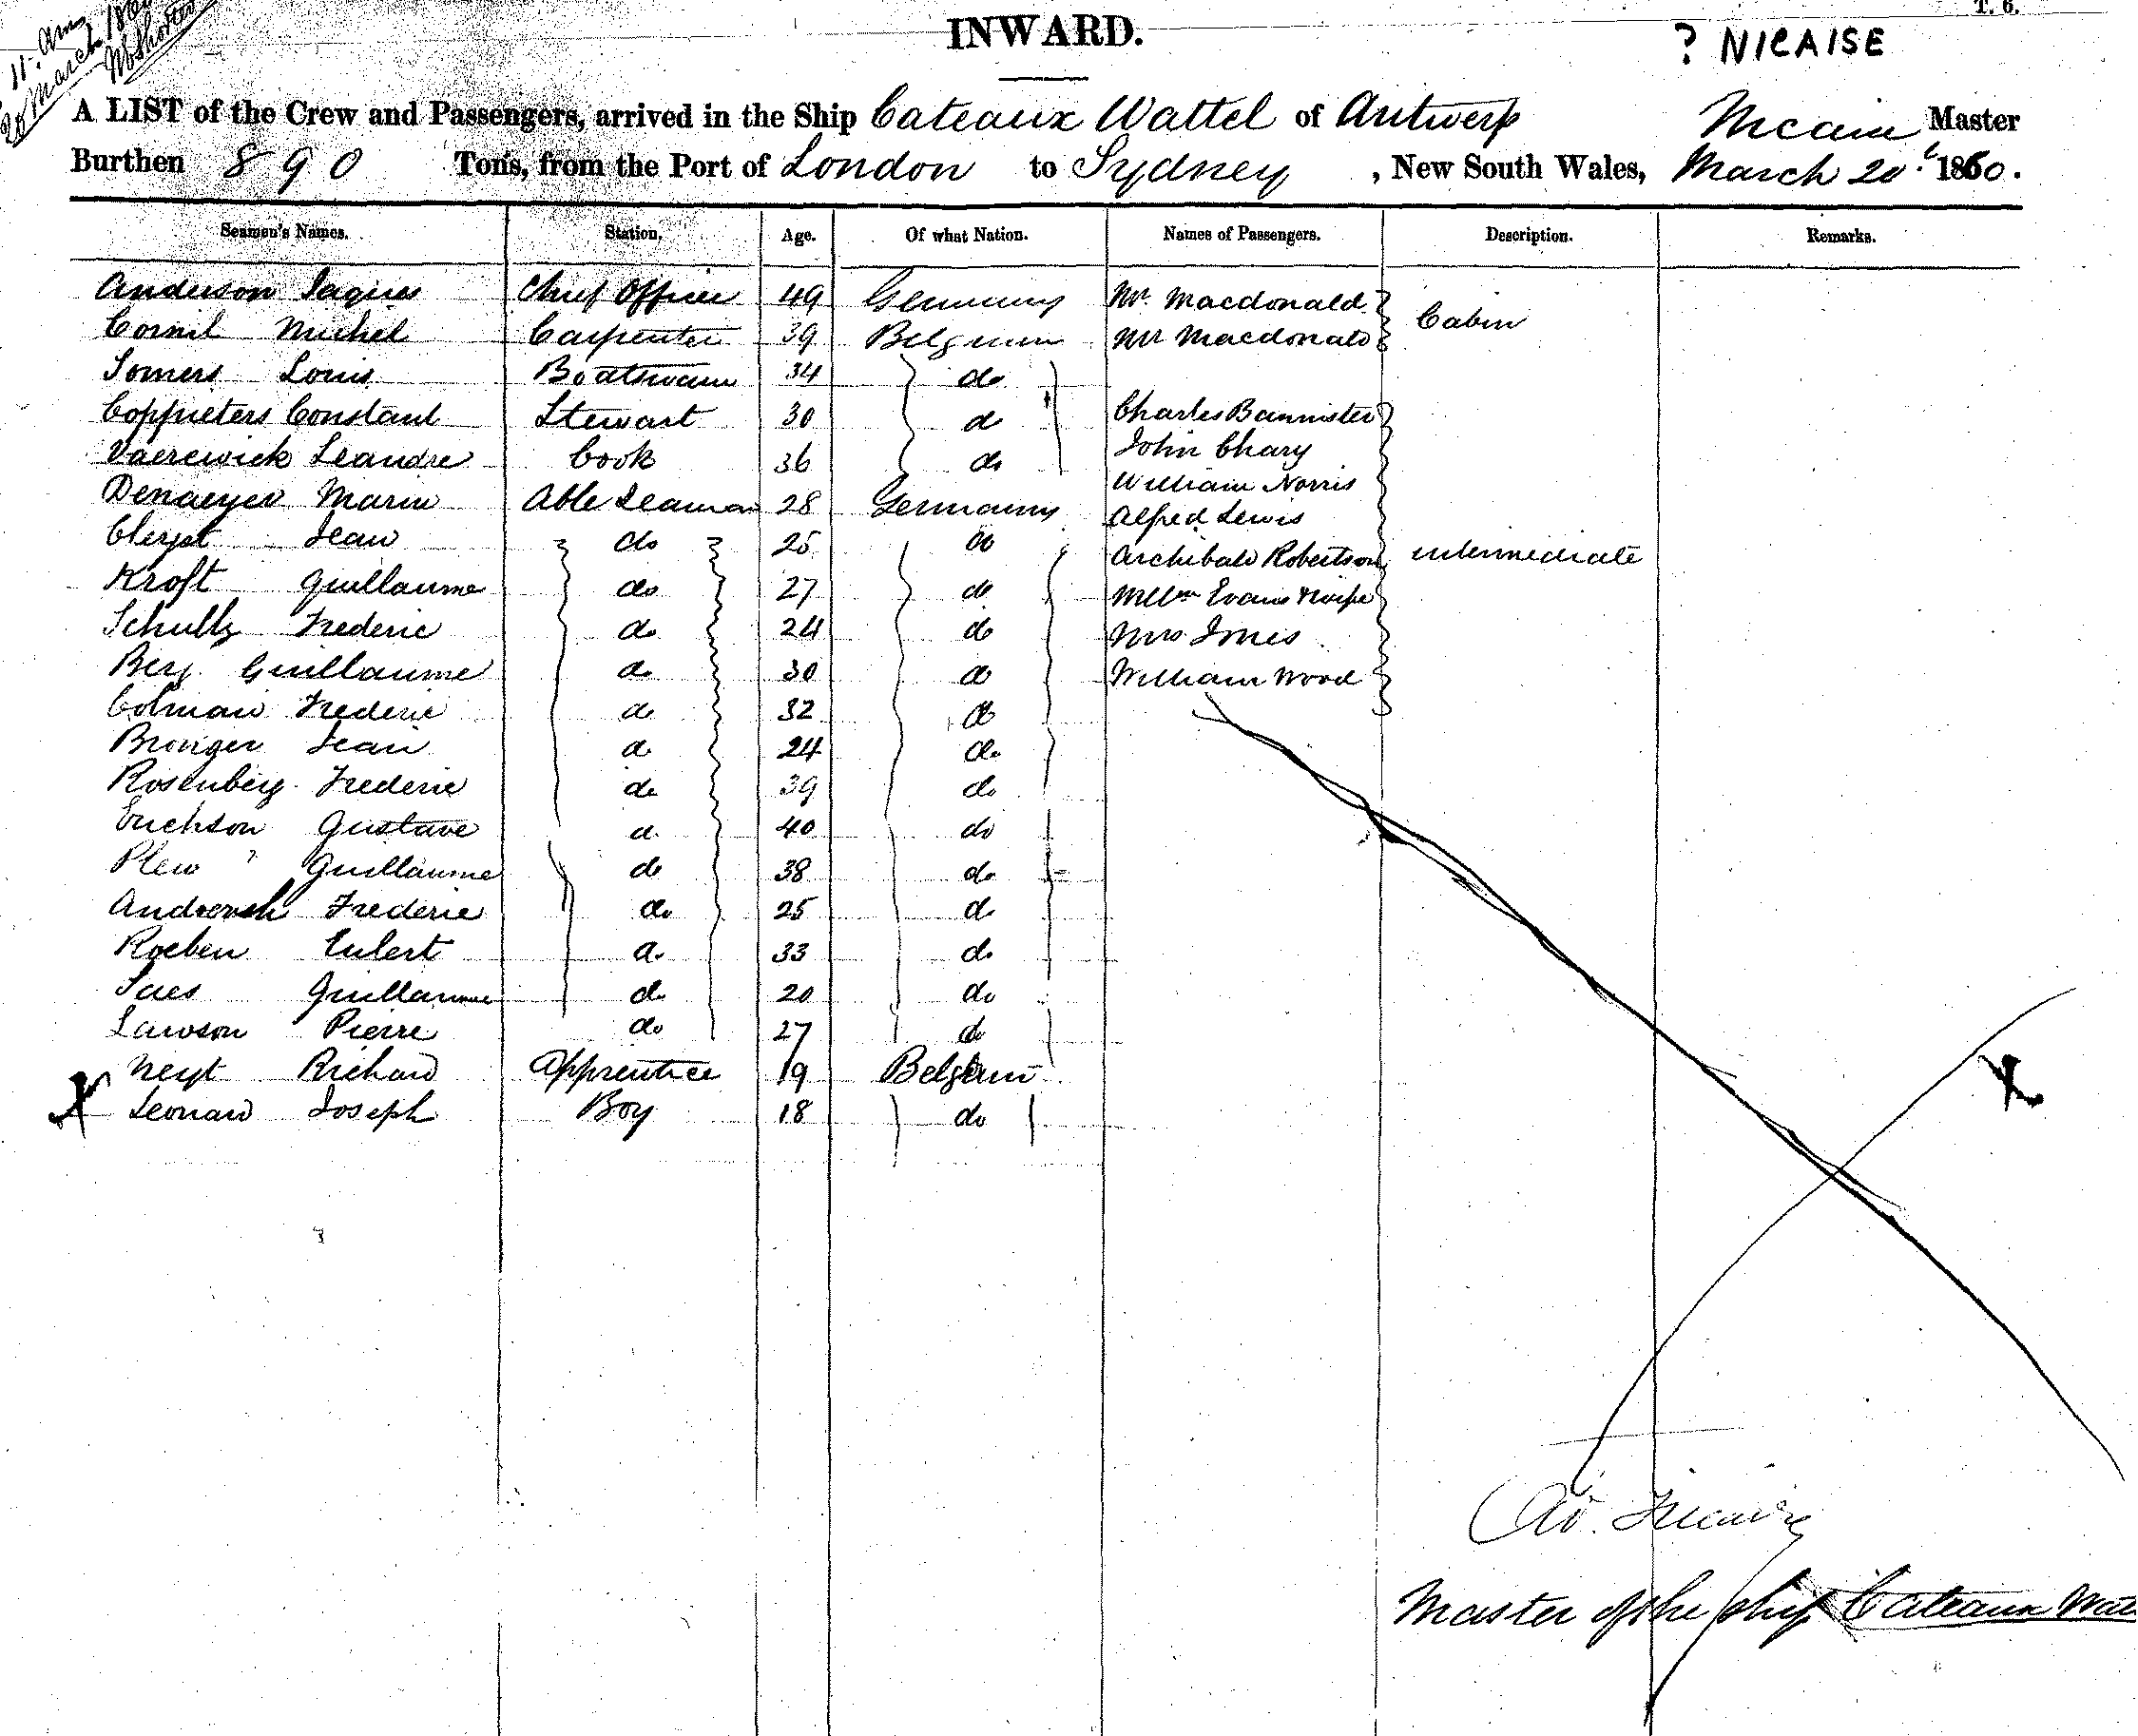 11. am
20 March 1860
INWARD.
T. 6.
? NICAISE
A LIST of the Crew and Passengers, arrived in the Ship Cateaux Wattel of Antwerp Nicaise Master
Burthen 890 Tons, from the Port of London to Sydney, New South Wales, March 20t 1860.
Seamen's Names. Station. Age. Of what Nation. Names of Passengers. Description. Remarks.
Anderson Jaques Chief Officer 49 Germany Mr. Macdonald Cabin
Cornil Michel Carpenter 39 Belgium Mr Macdonald
Somers Louis Boatswain 34 do
Coppieters Constant Stewart 30 do Charles Bannister
Vaerewick Leandre Cook 36 do John Chary
Denaeyer Marin Able Seaman 28 Germany William Norris
Alfred Lewis
Clerpt Jean do 25 do Archibald Robertson intermediate
Kroft Guillaume do 27 do Wllm Evans & wife
Schultz Frederic do 24 do Mrs Innes
Berg Guillaume do 30 do William Wood
Colman Frederic do 32 do
Bronger Jean do 24 do
Rosenberg Frederic do 39 do
Erichson Gustave do 40 do
Plew ? Guillaume do 38 do
Frederic do 25 do
Roeben Eulert do 33 do
Saes Guillaume do 20 do
Lawson Pierre do 27 do
Neyt Richard Apprentice 19 Belgium
X Leonard Joseph Boy 18 do X
Master of the ship Cateaux